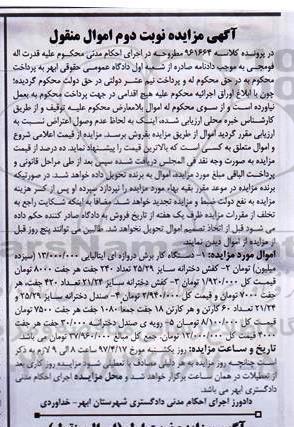 آگهی مزایده نوبت دوم اموال منقول
در پرونده کلاسه ۹۶۱۶۶۴ مطروحه در اجرای احکام مدنی محکوم علیه قدرت اله
قومچی به موجب دادنامه صادره از شعبه اول دادگاه عمومی حقوقی ابهر به پرداخت
محکوم به در حق محکوم له و پرداخت نیم عشر دولتی در حق دولت محکوم گردیده؛
چون با ابلاغ اوراق اجرائیه محکوم علیه هیچ اقدامی در جهت پرداخت محکوم به بعمل
نیاورده است و از سوی محکوم له اموال بلامعارض محکوم علیه توقیف و از طریق
کارشناس خبره محلی ارزیابی شده، اینک به لحاظ عدم وصول اعتراض نسبت به
ارزیابی مقرر گردید اموال از طریق مزایده بفروش برسد. مزایده از قیمت اعلامی شروع
و اموال متعلق به کسی است که بالاترین قیمت را پیشنهاد نماید. ده درصد از قیمت
مزایده به صورت وجه نقد فی المجلس دریافت شده سپس بعد از طی مراحل قانونی و
پرداخت الباقی مبلغ مورد مزایده، اموال به برنده تحویل داده خواهد شد. در صورتیکه
برنده مزایده در موعد مقرر بقیه بهاء مورد مزایده را نپردازد سپرده او پس از کسر هزینه
مزایده به نفع دولت ضبط و مزایده تجدید خواهد شد. مضافا به اینکه شکایت راجع به
تخلف از مقررات مزایده ظرف یک هفته از تاریخ فروش به دادگاه صادر کننده حکم داده
می شود قبل از اتخاذ تصمیم اموال تحویل نخواهد شد. طالبین می توانند پنج روز قبل
از مزایده از اموال دیدن نمایند.
اموال مورد مزایده: ۱- دستگاه کار برش دروازه ای ایتالیایی ۱۳/۰۰۰/۰۰۰ (سیزده
میلیون) تومان ۲- کفش دخترانه سایز ۲۵/۲۹ تعداد ۲۴۰ جفت هر جفت ۸۰۰۰ تومان
قیمت کل ۱/۹۲۰/۰۰۰ تومان ۳- کفش دخترانه سایز ۲۱/۲۴ تعداد ۴۲۰ جفت هر
جفت ۷۰۰۰ تومان و قیمت کل ۲/۹۴۰/۰۰۰ تومان ۴- صندل دخترانه سایز ۲۵/۲۹ و
۲۱/۲۴ تعداد ۶۰ کارتن و هر کارتن ۱۸ جفت جمعا ۱۰۸۰ جفت هر جفت ۷۵۰۰ تومان
قیمت کل ۸/۱۰۰/۰۰۰ تومان ۵- رویه ی صندل دخترانه ۳۰۰۰ جفت هر جفت
۴۰۰۰ تومان قیمت کل ۱۲/۰۰۰/۰۰۰ تومان. جمع کل مبلغ ۳۷/۹۶۰/۰۰۰ تومان می باشد.
تاریخ و ساعت مزایده: روز یکشنبه مورخ ۹۷/۴/۱۷ ساعت ۸ الی ۹ لازم به ذکر
است چنانچه روز مزایده به هر دلیلی مصادف با تعطیلی شود مزایده روز کاری بعد
از تعطیلات در همان ساعت برگزار خواهد شد و محل مزایده اجرای احکام مدنی
دادگستری ابهر می باشد.
دادورز اجرای احکام مدنی دادگستری شهرستان ابهر- خداوردی